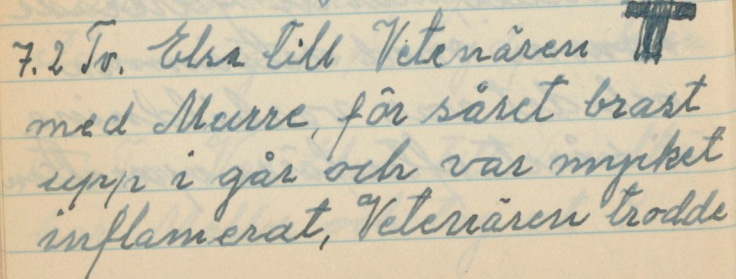 7.2 Tv. Elsa till Vetenären T
med Murre, för såret brast
upp i går och var mycket
inflamerat, Vetenären trodde